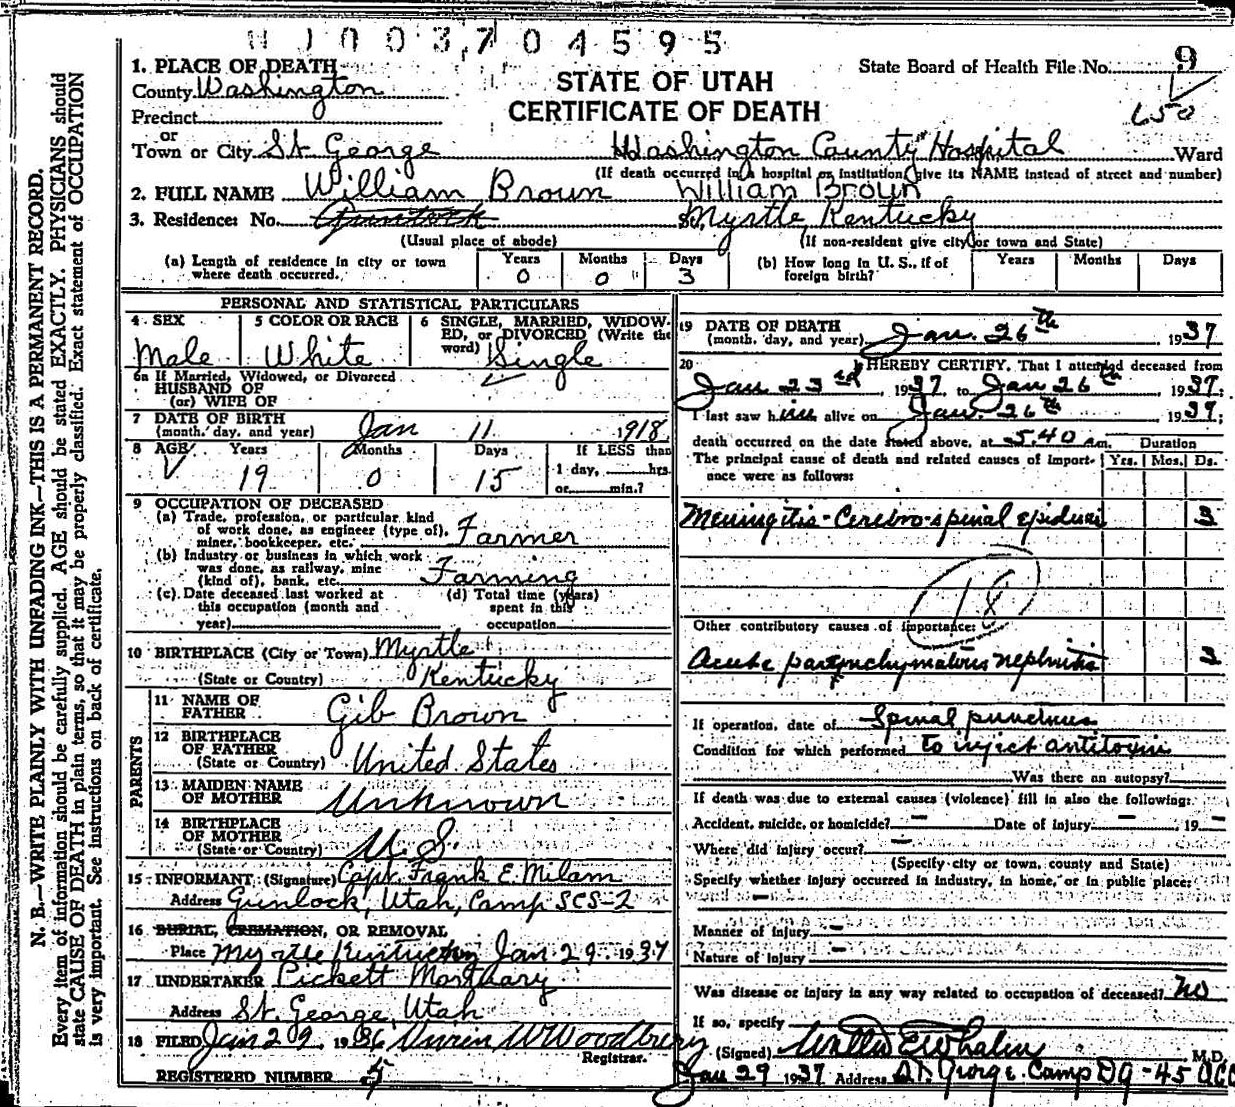 0037 04595
9
1. PLACE OF DEATH
STATE OF UTAH
CERTIFICATE OF DEATH
State Board of Health File No.
County Washington
Precinct
or
Town or City St George Washington County Hospital Ward
(If death occurred in a hospital or institution, give its NAME instead of street and number)
2. FULL NAME William Brown William Brown
3. Residence: No. Gunlock St. Myrtle, Kentucky
(Usual place of abode) (If non-resident give city or town and State)
(a) Length of residence in city or town where death occurred. Years 0 Months 0 Days 3
(b) How long in U. S., if of foreign birth? Years Months Days
PERSONAL AND STATISTICAL PARTICULARS
4 SEX Male
5 COLOR OR RACE White
6 SINGLE, MARRIED, WIDOW-
ED, or DIVORCED (Write the
word) Single
6a If Married, Widowed, or Divorced
HUSBAND OF
(or) WIFE OF
7 DATE OF BIRTH
(month, day, and year) Jan 11 1918
8 AGE Years 19 Months 0 Days 15 If LESS than
1 day, hrs.
or min.?
9 OCCUPATION OF DECEASED
(a) Trade, profession, or particular kind
of work done, as engineer (type of),
miner, bookkeeper, etc. Farmer
(b) Industry or business in which work
was done, as railway, mine
(kind of), bank, etc. Farming
(c) Date deceased last worked at
this occupation (month and
year)
(d) Total time (years)
spent in this
occupation
10 BIRTHPLACE (City or Town) Myrtle
(State or Country) Kentucky
PARENTS
11 NAME OF
FATHER Gib Brown
12 BIRTHPLACE
OF FATHER
(State or Country) United States
13 MAIDEN NAME
OF MOTHER Unknown
14 BIRTHPLACE
OF MOTHER
(State or Country) U. S.
15 INFORMANT (Signature) Capt. Frank E. Milam
Address Gunlock, Utah, Camp SCS-2
16 BURIAL, CREMATION, OR REMOVAL
Place Myrtle Kentucky Jan 29 1937
17 UNDERTAKER Pickett Mortuary
Address St. George, Utah
18 FILED Jan 29 1936 W Woodbury
Registrar.
REGISTERED NUMBER 5
19 DATE OF DEATH
(month, day, and year) Jan. 26th 1937
20 I HEREBY CERTIFY, That I attended deceased from
Jan 23rd, 1937, to Jan 26th 1937;
I last saw him alive on Jan. 26th 1937;
death occurred on the date stated above, at 5.40 a.m. Duration
The principal cause of death and related causes of import-
ance were as follows: Yrs. Mos. Ds.
Meningitis - Cerebro-spinal epidemic 3
18
Other contributory causes of importance:
Acute parenchymatous nephritis 3
If operation, date of Spinal punctures
Condition for which performed to inject antitoxin
Was there an autopsy?
If death was due to external causes (violence) fill in also the following:
Accident, suicide, or homicide? — Date of injury — 19 —
Where did injury occur? —
(Specify city or town, county and State)
Specify whether injury occurred in industry, in home, or in public place:
—
Manner of Injury —
Nature of Injury —
Was disease or injury in any way related to occupation of deceased? No
If so, specify
(Signed) Walter E Whalen M.D.
Jan 29 1937 Address St. George Camp DG-45 CCC
N. B.—WRITE PLAINLY WITH UNFADING INK—THIS IS A PERMANENT RECORD.
Every item of information should be carefully supplied. AGE should be stated EXACTLY. PHYSICIANS should
state CAUSE OF DEATH in plain terms, so that it may be properly classified. Exact statement of OCCUPATION
is very important. See instructions on back of certificate.